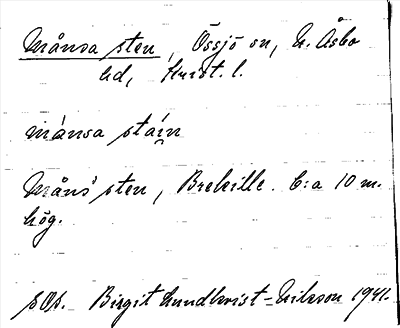 Månsa sten, Össjö sn, N. Åsbo
hd, Krist. l.
månsa staín
Måns' sten, Brekille. C:a 10 m.
hög.
Birgit Lundkvist-Nilsson 1941.